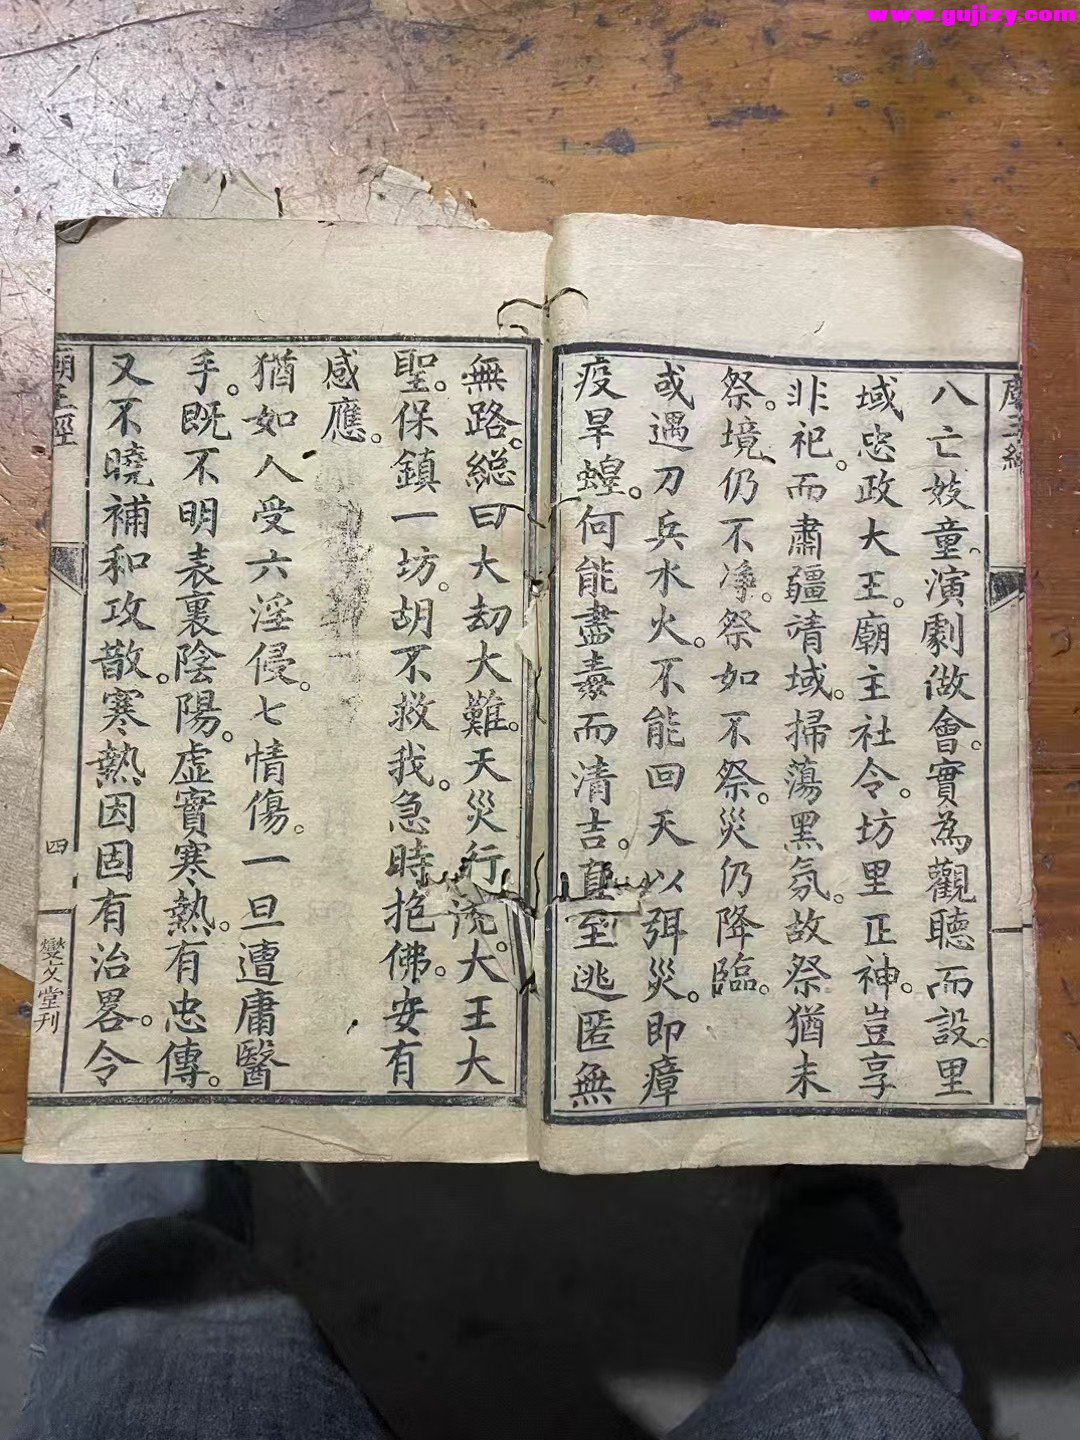 www.gujizy.com
八亡妓童。演劇做會。實為觀聽而設。里
域忠政大王。廟主社令。坊里正神。豈享
非祀。而肅疆靖域。掃蕩黑氛。故祭猶未
祭。境仍不淨。祭如不祭。災仍降臨。
或遇刀兵水火。不能回天以弭災。即瘴
疫旱蝗。何能盡毒而清吉。直至逃匿無
無路。縂曰大劫大難。天災行流。大王大
聖。保鎮一坊。胡不救我。急時抱佛。安有
感應。
猶如人受六淫侵。七情傷。一旦遭庸醫
手。既不明表裏陰陽。虛實寒熱。有忠傳。
又不曉補和攻散。寒熱因固有治畧。令
廟王經
四
燮文堂刊